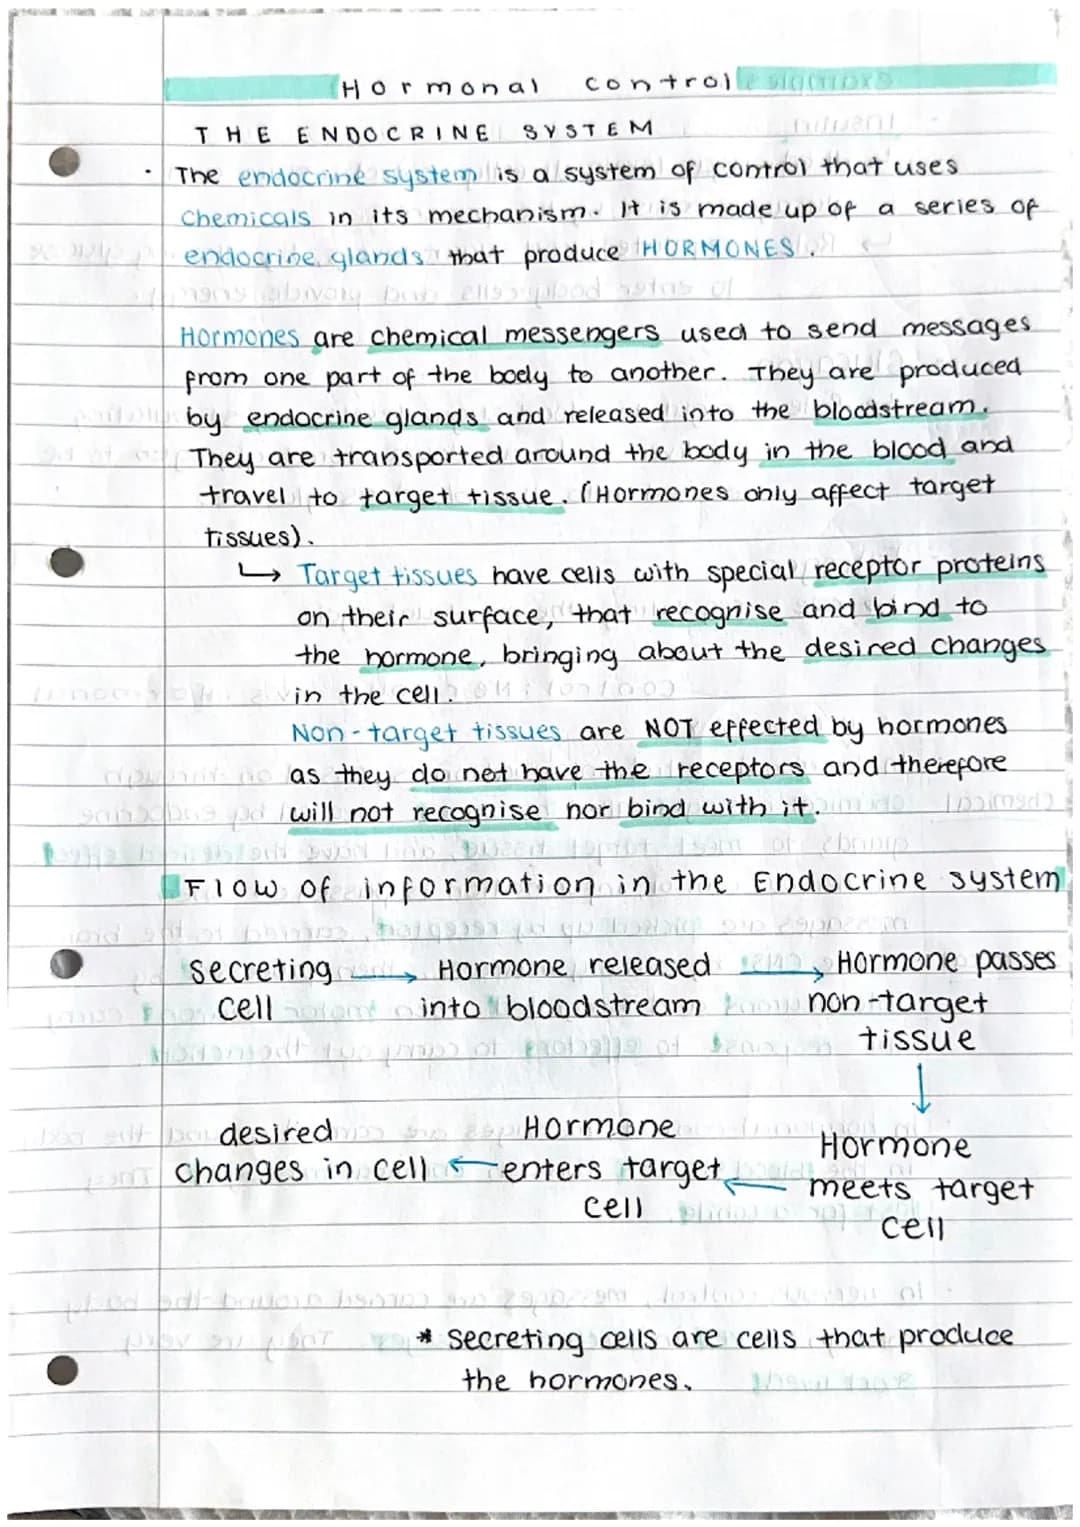 Hormonal control
THE ENDOCRINE SYSTEM
· The endocrine system is a system of control that uses
chemicals in its mechanism. It is made up of a series of
endocrine glands that produce HORMONES.
Hormones are chemical messengers used to send messages
from one part of the body to another. They are produced
by endocrine glands and released into the bloodstream.
They are transported around the body in the blood and
travel to target tissue. (Hormones only affect target
tissues).
↳ Target tissues have cells with special receptor proteins
on their surface, that recognise and bind to
the hormone, bringing about the desired changes
in the cell.
Non-target tissues are NOT effected by hormones
as they do not have the receptors and therefore
will not recognise nor bind with it.
Flow of information in the Endocrine system
secreting → Hormone released → Hormone passes
cell into bloodstream non-target
tissue
↓
desired Hormone Hormone
changes in cell ← enters target ← meets target
cell cell
* Secreting cells are cells that produce
the hormones.